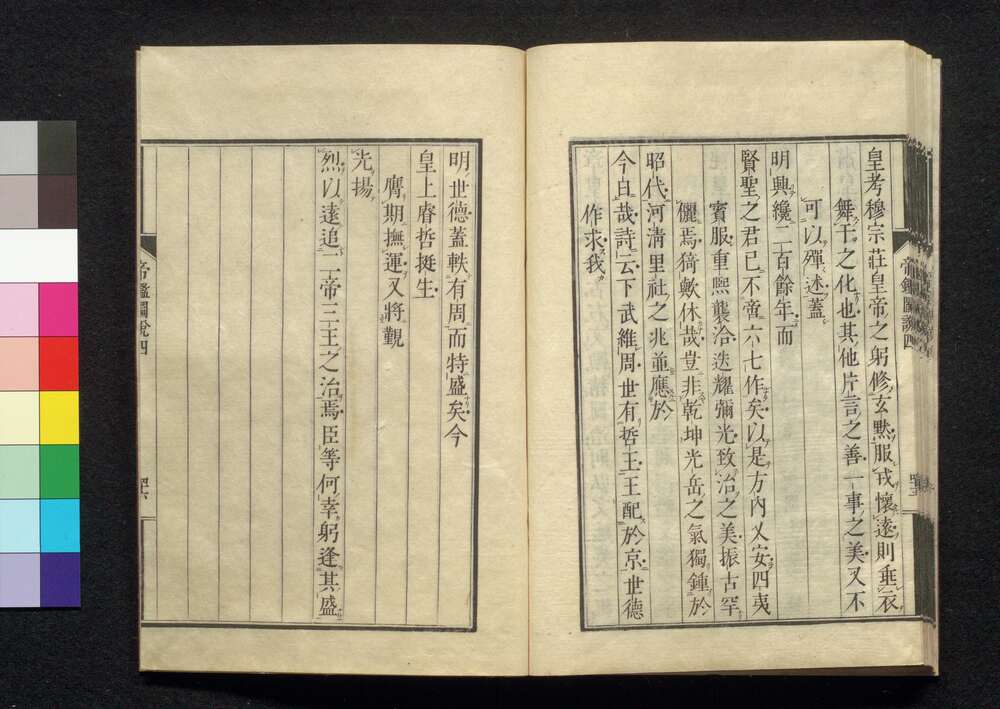 皇考穆宗莊皇帝之躬修玄默服戎懷遠則垂衣
舞干之化也其他片言之善一事之美又不
可以殫述蓋
明興纔二百餘年而
賢聖之君已不啻六七作矣以是方內乂安四夷
賓服重熙襲洽迭耀彌光致治之美振古罕
儷焉猗歟休哉豈非乾坤光岳之氣獨鍾於
昭代河清里社之兆並應於
今日哉詩云下武維周世有哲王王配於京世德
作求我
明世德蓋軼有周而特盛矣今
皇上睿哲挺生
膺期撫運又將覲
光揚
烈以遠追二帝三王之治焉臣等何幸躬逢其盛
帝鑑圖說四